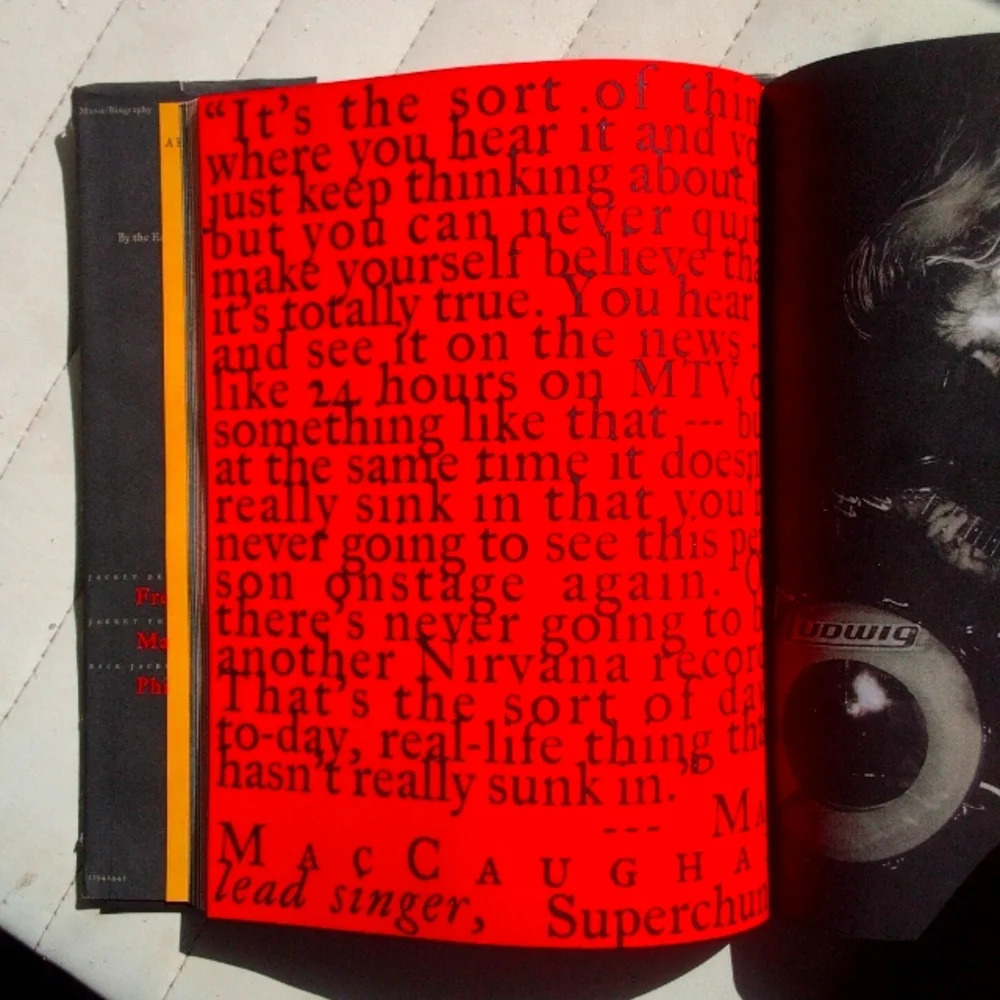 Music/Biography
By the
"It's the sort of thin
where you hear it and yo
just keep thinking about
but you can never quit
make yourself believe tha
it's totally true. You hear
and see it on the news -
like 24 hours on MTV o
something like that --- bu
at the same time it doesn
really sink in that you'r
never going to see this per
son onstage again. O
there's never going to b
another Nirvana recor
That's the sort of day
to-day, real-life thing tha
hasn't really sunk in."
--- Ma
MacCaugha
lead singer, Superchun
JACKET DE
Fre
JACKET PH
Ma
BACK JACKE
Phi
LUDWIG